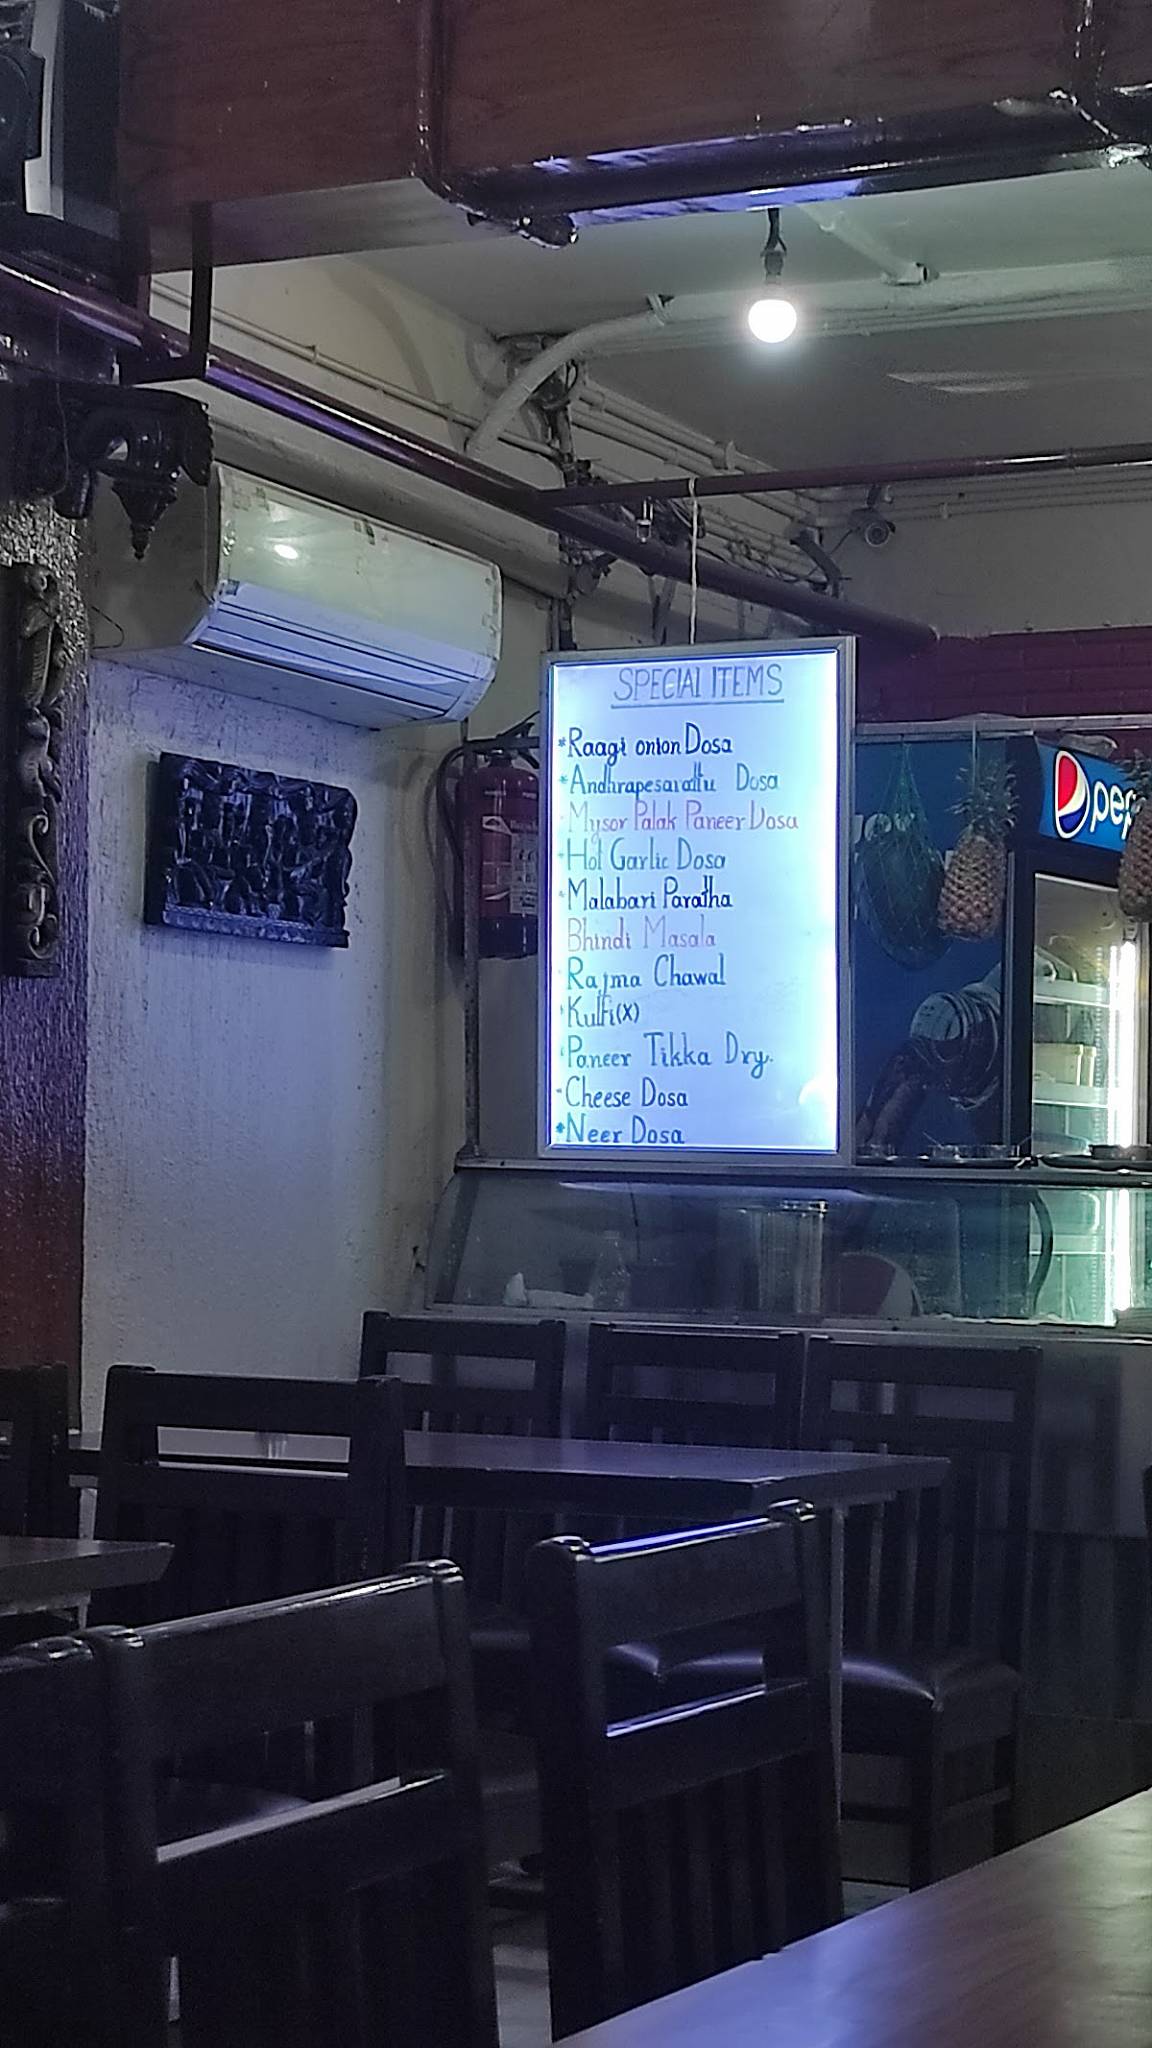 SPECIAL ITEMS
*Raagi onion Dosa
*Andhrapesarattu Dosa
Mysor Palak Paneer Dosa
*Hot Garlic Dosa
*Malabari Paratha
Bhindi Masala
*Rajma Chawal
*Kulfi(X)
*Paneer Tikka Dry.
*Cheese Dosa
*Neer Dosa